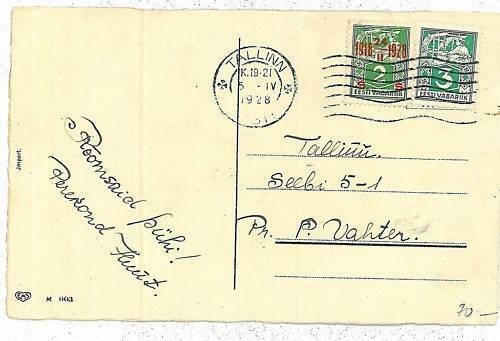 TALLINN
K.19-21
5 -IV
1928
1918 24 1928
II
2
S S
EESTI VABARIIK
3
EESTI VABARIIK
Roomsaid pühi!
Perekond
Tallinn.
Seebi 5-1
Pr. P. Vahter.
Import.
M 003
70-